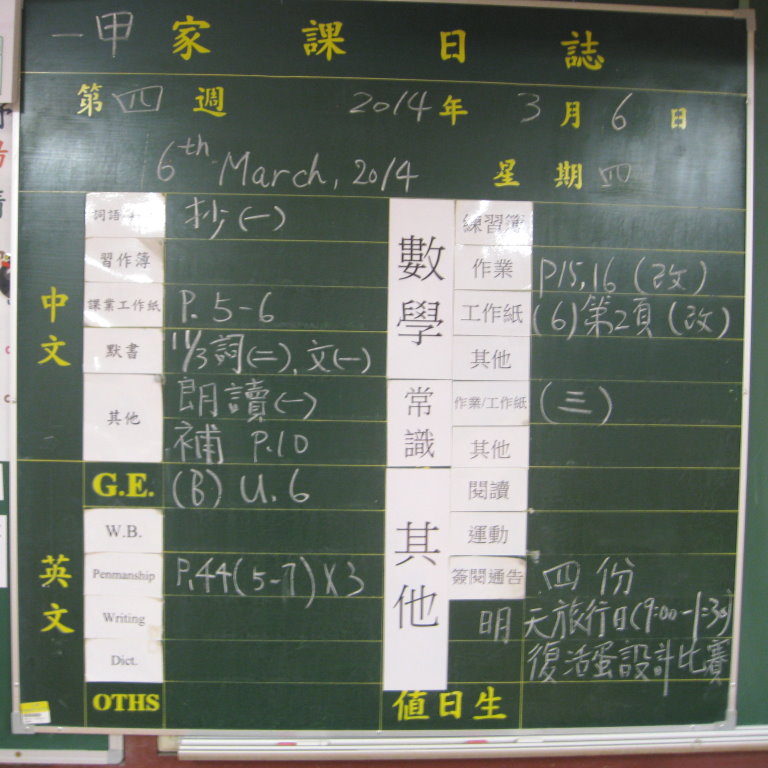 一甲 家課日誌
第四週 2014年3月6日
6th March, 2014 星期四
中文
抄(一)
習作簿
課業工作紙 P. 5-6
默書 11/3詞(二)、文(一)
其他 朗讀(一)
補 P.10
英文
G.E. (B) U.6
W.B.
Penmanship P.44(5-7)X3
Writing
Dict.
OTHS
數學
練習簿
作業 P15,16 (改)
工作紙 (6)第2頁(改)
其他
常識
作業/工作紙 (三)
其他
其他
閱讀
運動
簽閱通告 四份
明天旅行日(9:00-1:30)
復活蛋設計比賽
值日生